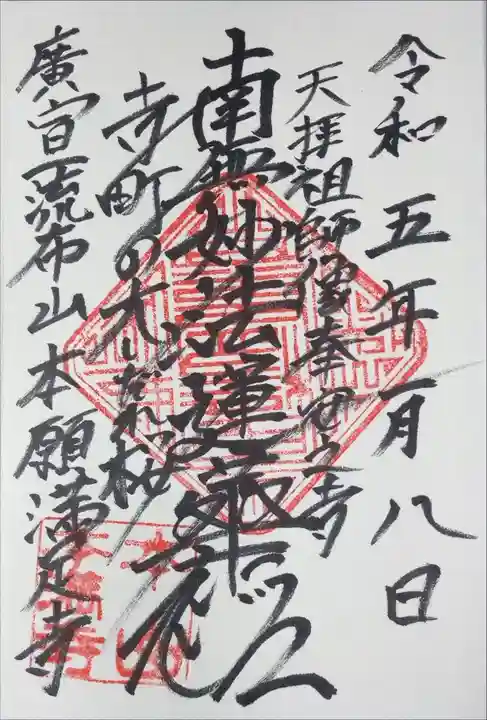 令和五年一月八日
天拝祖師像奉安之寺
南無妙法蓮華経
寺町の大しだれ桜
廣宣流布山本願満足寺